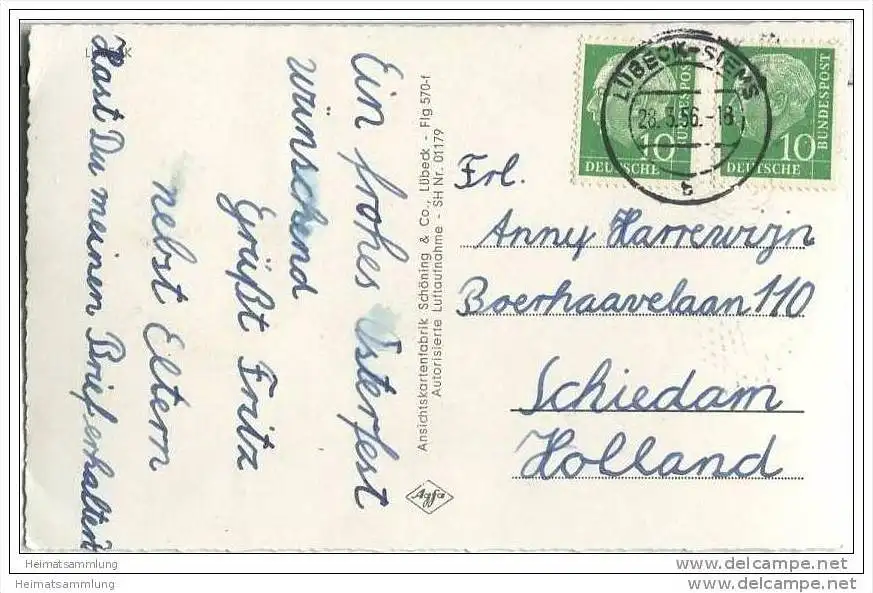 Ein frohes Osterfest
wünschend
Grüßt Fritz
nebst Eltern
Hast Du meinen Brief erhalten
Ansichtskartenfabrik Schöning & Co., Lübeck - Flg 570-f
Autorisierte Luftaufnahme - SH Nr. 01179
Agfa
LÜBECK-SIEMS
28.3.56.-18
b
BUNDESPOST
10
DEUTSCHE
BUNDESPOST
10
DEUTSCHE
Frl.
Anny Harrewijn
Boerhaavelaan 110
Schiedam
Holland
Heimatsammlung
www.delcampe.net
Heimatsammlung
www.delcampe.net